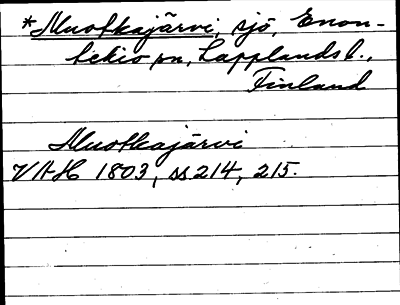 *Muotkajärvi, sjö, Enon-
tekio sn, Lapplands l.,
Finland
Muotkajärvi
VAH 1803, ss 214, 215.